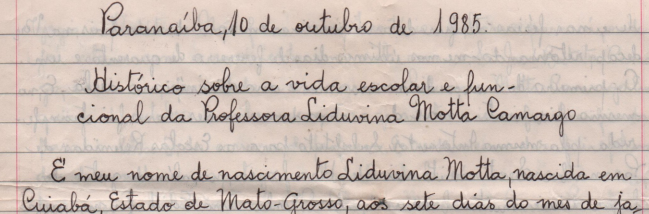 Paranaíba, 10 de outubro de 1985.
Histórico sobre a vida escolar e fun-
cional da Professora Liduvina Motta Camargo
E meu nome de nascimento Liduvina Motta, nascida em
Cuiabá, Estado de Mato-Grosso, aos sete dias do mes de ja